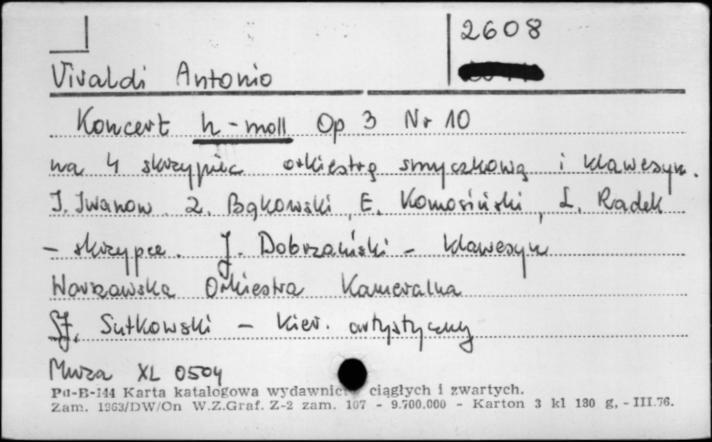 2608
Vivaldi Antonio
Koncert h-moll Op 3 Nr 10
na 4 skrzypiec orkiestrę smyczkową i klawesyn.
I. Iwanow, Z. Bąkowski, E. Komosiński, L. Radek
- skrzypce. J. Dobrzański - klawesyn
Warszawska Orkiestra Kameralna
Sutkowski - kier. artystyczny
Muza XL 0504
Pu-B-144 Karta katalogowa wydawnictw ciągłych i zwartych.
Zam. 1963/DW/On W.Z.Graf. Z-2 zam. 107 - 9.700.000 - Karton 3 kl 180 g, - III.76.